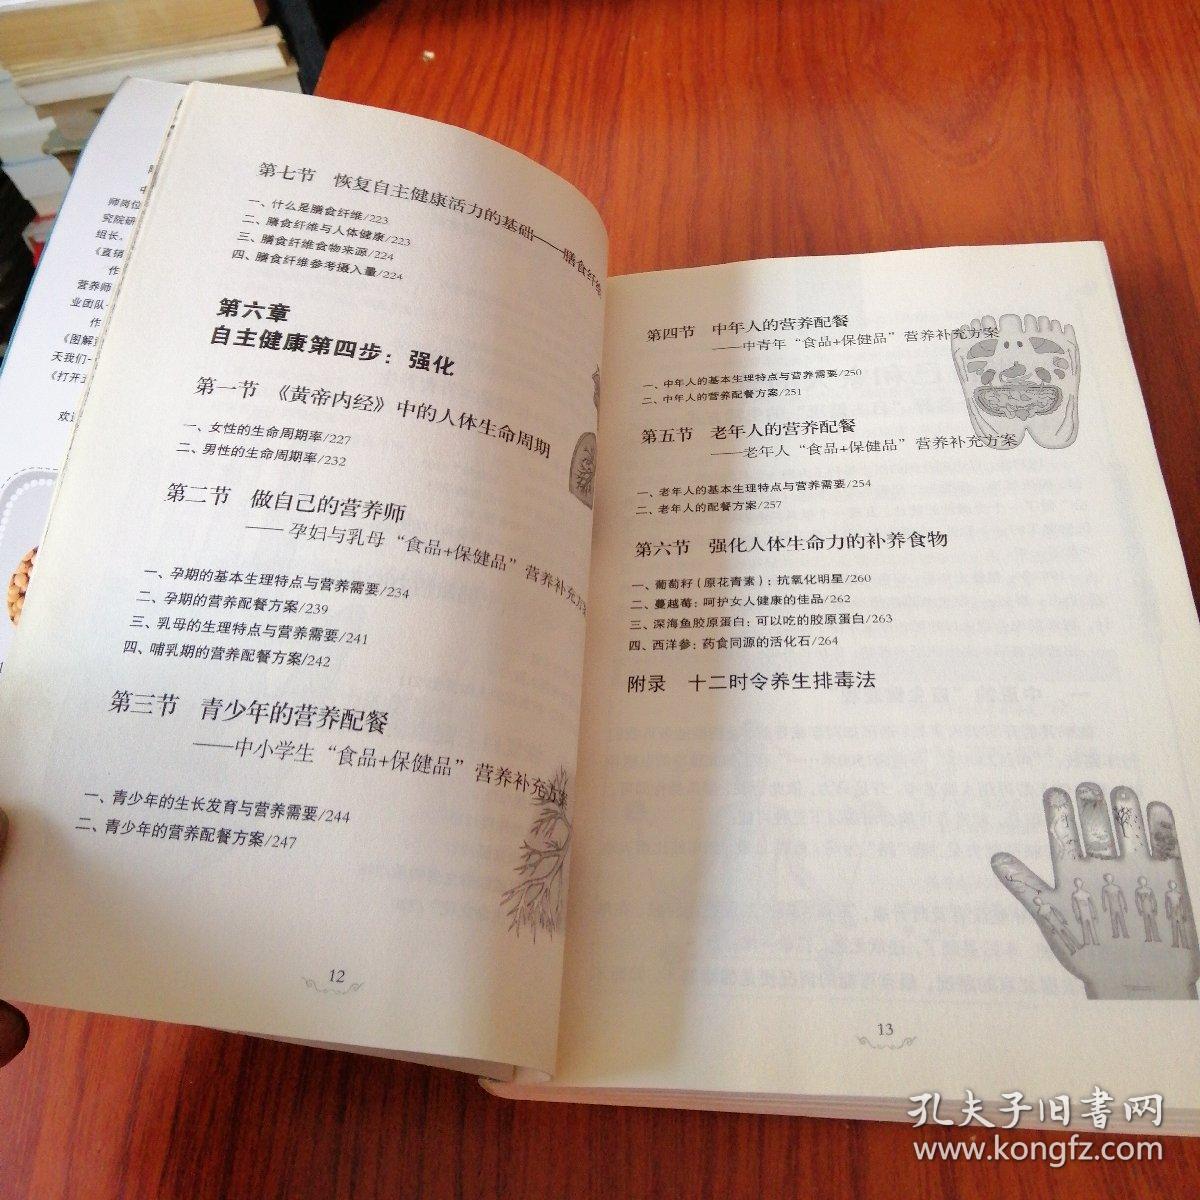 师岗位
究院研
组长,
《直销
作
营养师
业团队
作
《图解
天我们一
《打开
欢迎
第七节 恢复自主健康活力的基础——膳食纤维
一、什么是膳食纤维/223
二、膳食纤维与人体健康/223
三、膳食纤维食物来源/224
四、膳食纤维参考摄入量/224
第六章
自主健康第四步：强化
第一节 《黄帝内经》中的人体生命周期
一、女性的生命周期率/227
二、男性的生命周期率/232
第二节 做自己的营养师
——孕妇与乳母“食品+保健品”营养补充方案
一、孕期的基本生理特点与营养需要/234
二、孕期的营养配餐方案/239
三、乳母的生理特点与营养需要/241
四、哺乳期的营养配餐方案/242
第三节 青少年的营养配餐
——中小学生“食品+保健品”营养补充方案
一、青少年的生长发育与营养需要/244
二、青少年的营养配餐方案/247
12
第四节 中年人的营养配餐
——中青年“食品+保健品”营养补充方案
一、中年人的基本生理特点与营养需要/250
二、中年人的营养配餐方案/251
第五节 老年人的营养配餐
——老年人“食品+保健品”营养补充方案
一、老年人的基本生理特点与营养需要/254
二、老年人的配餐方案/257
第六节 强化人体生命力的补养食物
一、葡萄籽（原花青素）：抗氧化明星/260
二、蔓越莓：呵护女人健康的佳品/262
三、深海鱼胶原蛋白：可以吃的胶原蛋白/263
四、西洋参：药食同源的活化石/264
附录 十二时令养生排毒法
13
孔夫子旧书网
www.kongfz.com